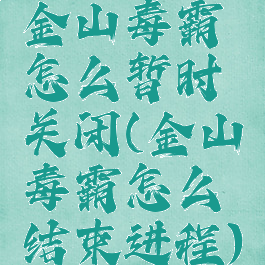 金山毒霸
怎么暂时
关闭(金山
毒霸怎么
结束进程)